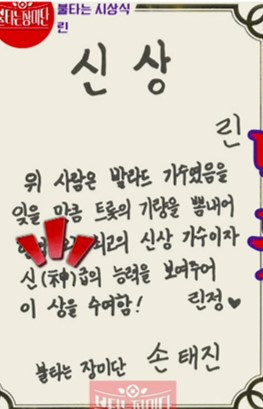 불타는장미단
불타는 시상식
린
신상
린
위 사람은 발라드 가수였음을
잊을 만큼 트롯의 기량을 뽐내어
최고의 신상 가수이자
신(神)급의 능력을 보여주어
이 상을 수여함! 린정♥
불타는 장미단 손태진
불타는장미단